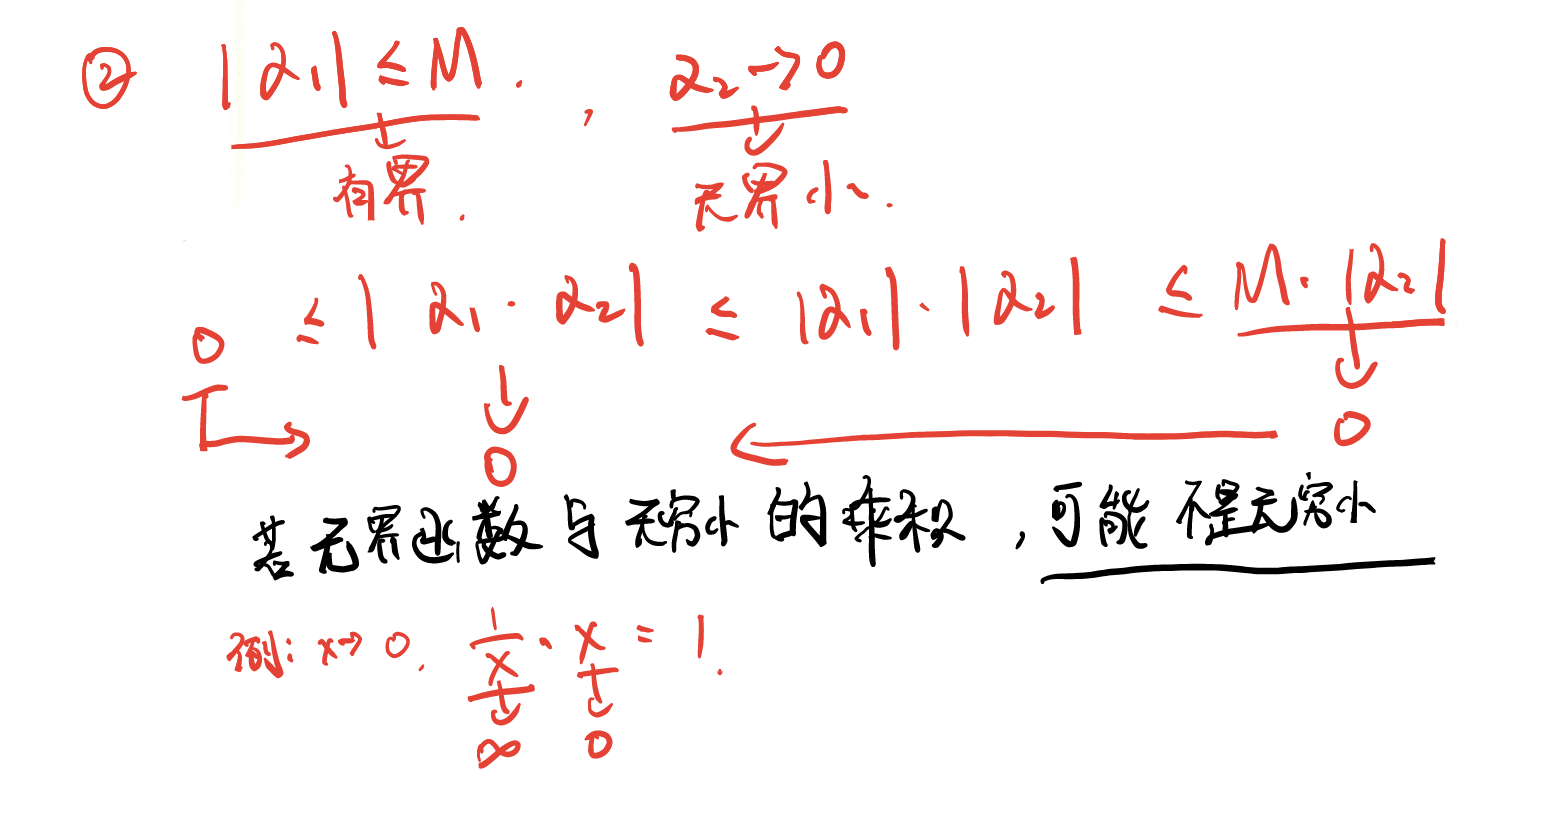 ② |α₁| ≤ M. , α₂ → 0
有界. 无界小.
0 ≤ |α₁·α₂| ≤ |α₁|·|α₂| ≤ M·|α₂|
0 0
若无界函数与无穷小的乘积,可能不是无穷小
例: x→0, 1/x · x = 1.
∞ 0